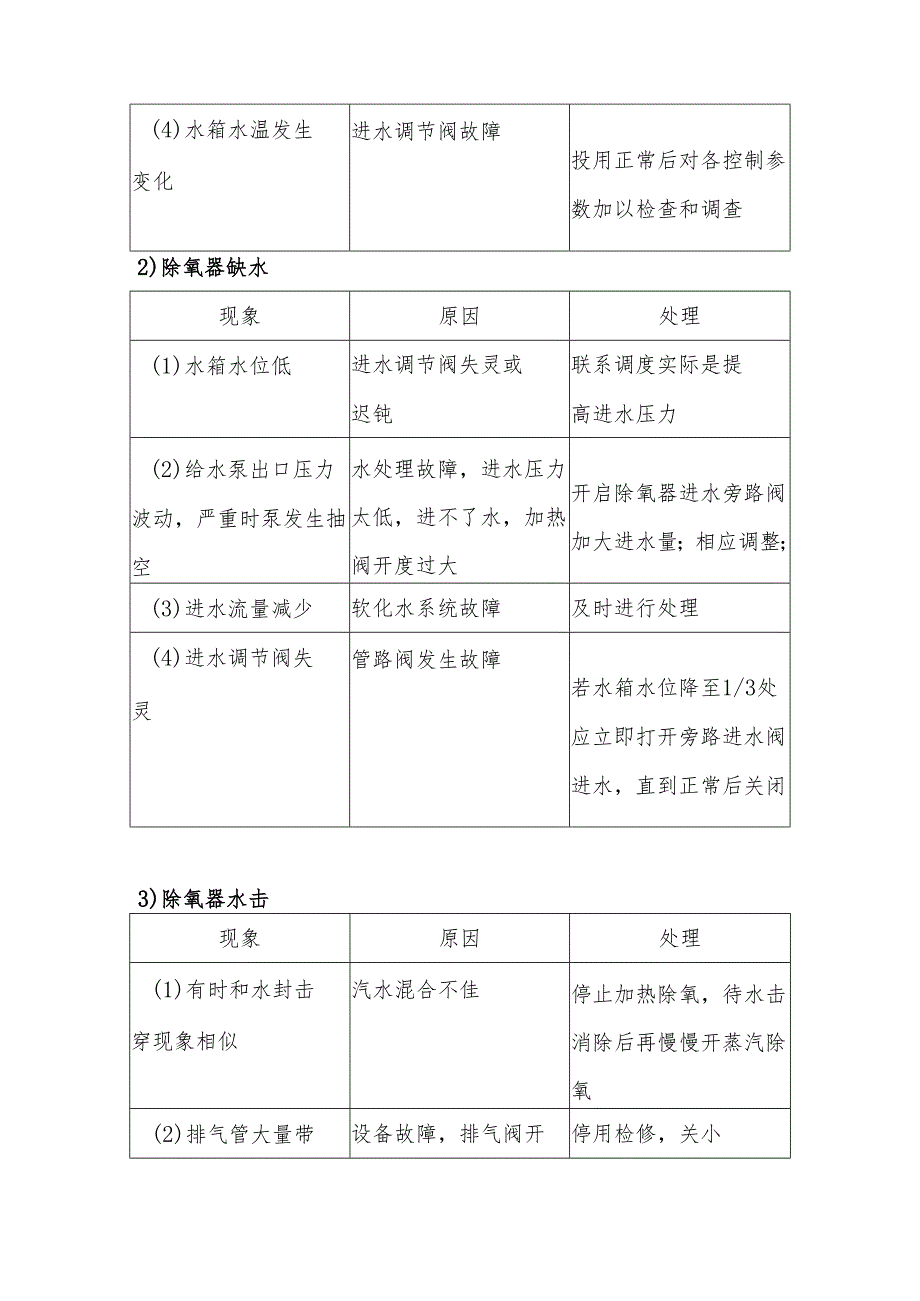 (4)水箱水温发生
变化
进水调节阀故障
投用正常后对各控制参
数加以检查和调查
2)除氧器缺水
现象
原因
处理
(1)水箱水位低
进水调节阀失灵或
迟钝
联系调度实际是提
高进水压力
(2)给水泵出口压力
波动，严重时泵发生抽
空
水处理故障，进水压力
太低，进不了水，加热
阀开度过大
开启除氧器进水旁路阀
加大进水量；相应调整；
(3)进水流量减少
软化水系统故障
及时进行处理
(4)进水调节阀失
灵
管路阀发生故障
若水箱水位降至1/3处
应立即打开旁路进水阀
进水，直到正常后关闭
3)除氧器水击
现象
原因
处理
(1)有时和水封击
穿现象相似
汽水混合不佳
停止加热除氧，待水击
消除后再慢慢开蒸汽除
氧
(2)排气管大量带
设备故障，排气阀开
停用检修，关小